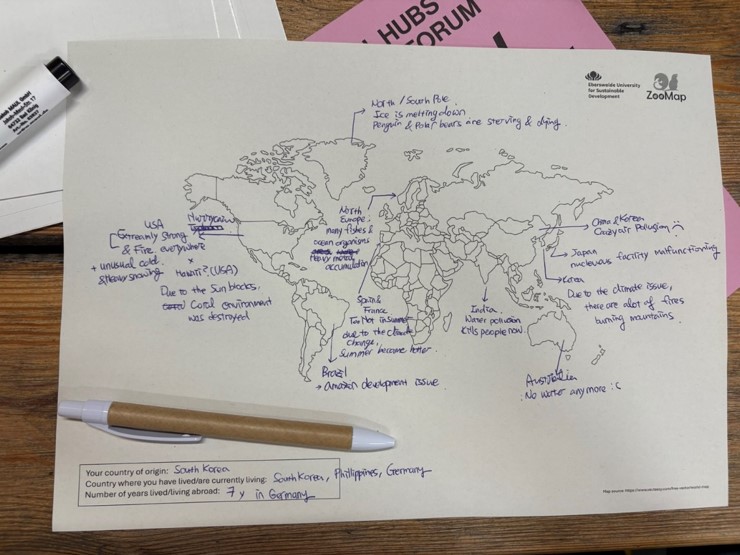 HUBS
FORUM
Eberswalde University
for Sustainable
Development
ZooMap
North / South Pole
Ice is melting down
Penguin & Polar bears are sterving & dying.
USA
Extreamly strong Hurrycain
& Fire everywhere
+ unusual cold
& Heavy snowing
Hawaii? (USA)
Due to the Sun blocks.
Coral environment
was destroyed
North
Europe:
many fishes &
ocean organisms
Heavy metal
accumulation
Spain &
France
Too Hot in summer
due to the climate
change,
summer become hotter.
Brazil
→ amazon development issue
India.
Water pollusion
Kills people now.
China & Korea
Crazy air Polusion :(
Japan
nucleuous facility malfunctioning
Korea
Due to the climate issue,
there are alot of fires
burning mountains.
Australia
: No water anymore :(
Your country of origin: South Korea
Country where you have lived/are currently living: South Korea, Phillippines, Germany
Number of years lived/living abroad: 7 y in Germany